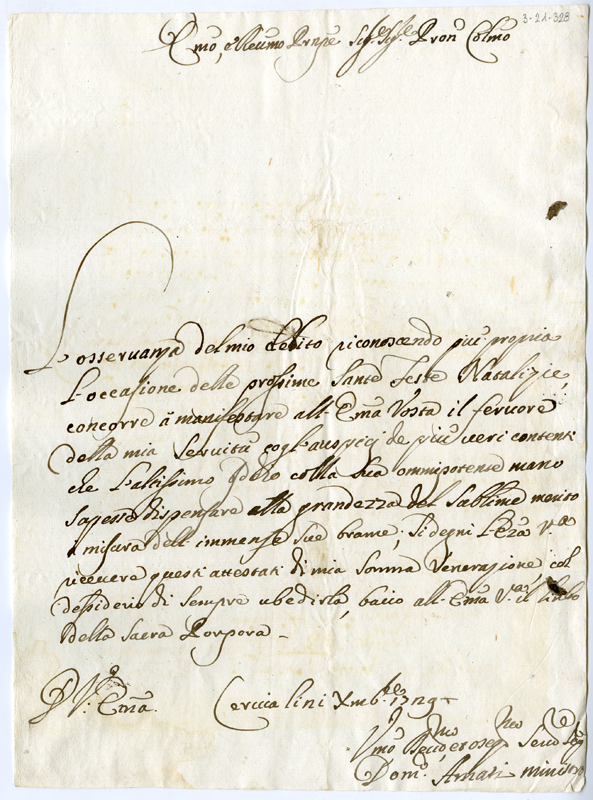 3-21-328
Emo, e Reumo Prnpe Sigr. Sigr. Pron. Colmo
L'osseruanza del mio debito riconoscendo piu' propria
L'occasione delle prossime Sante feste Natalizie,
concorre à manifestare all'Emza Vosta il feruore
della mia Seruitù cogl'auspicj de piu' veri contenti
che l'altissimo Iddio colla sua omnipotente mano
sapesse dispensare alla grandezza del sublime merito
a misura dell'immense sue brame; Si degni l'Emza Va.
riceuere questi attestati di mia somma Venerazione, col
dessiderio di sempre ubedirla, bacio all'Emza Va. il lembo
della Sacra Porpora -
D. V. Emza.
li Xmbre 1729
Vmo Deuo Seruo
Domo. Amati